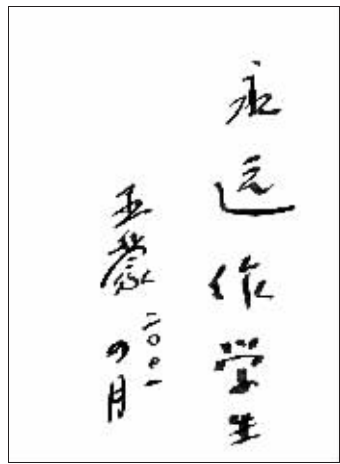 永远作学生
王蒙
二〇〇一
四月